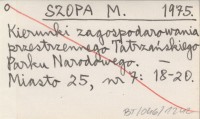 SZOPA M. 1975.
Kierunki zagospodarowania
przestrzennego Tatrzańskiego
Parku Narodowego. –
Miasto 25, nr 7: 18-20.